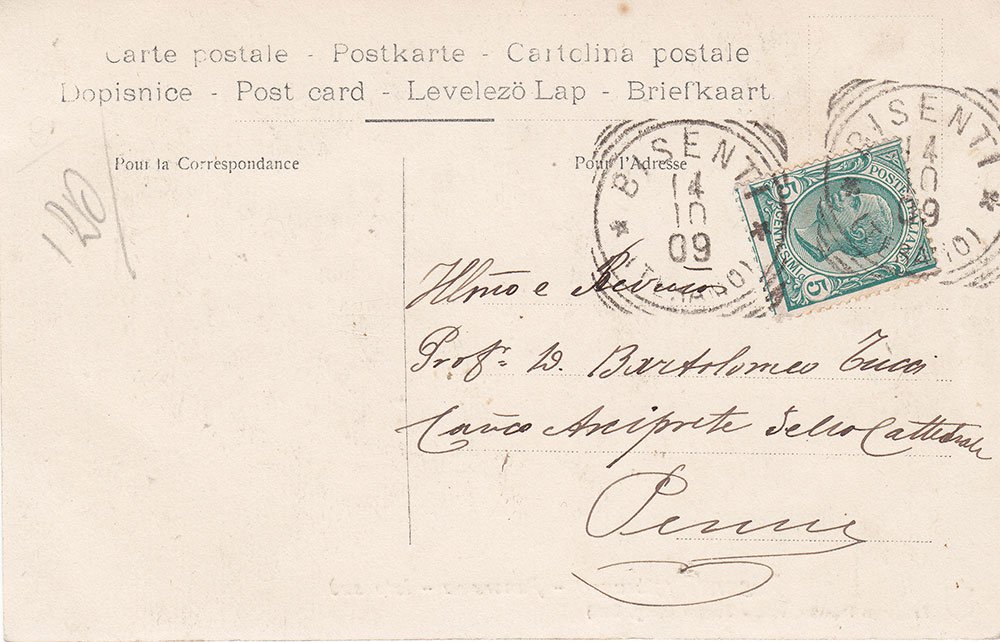 Carte postale - Postkarte - Cartolina postale
Dopisnice - Post card - Levelezö Lap - Briefkaart
Pour la Correspondance
Pour l'Adresse
1210
BISENTI
14
10
09
(TERAMO)
BISENTI
14
10
09
POSTE ITALIANE
CENTESIMI
5
5
Illmo e Revmo
Prof. D. Bartolomeo Tucci
Canco Arciprete della Cattedrale
Penne